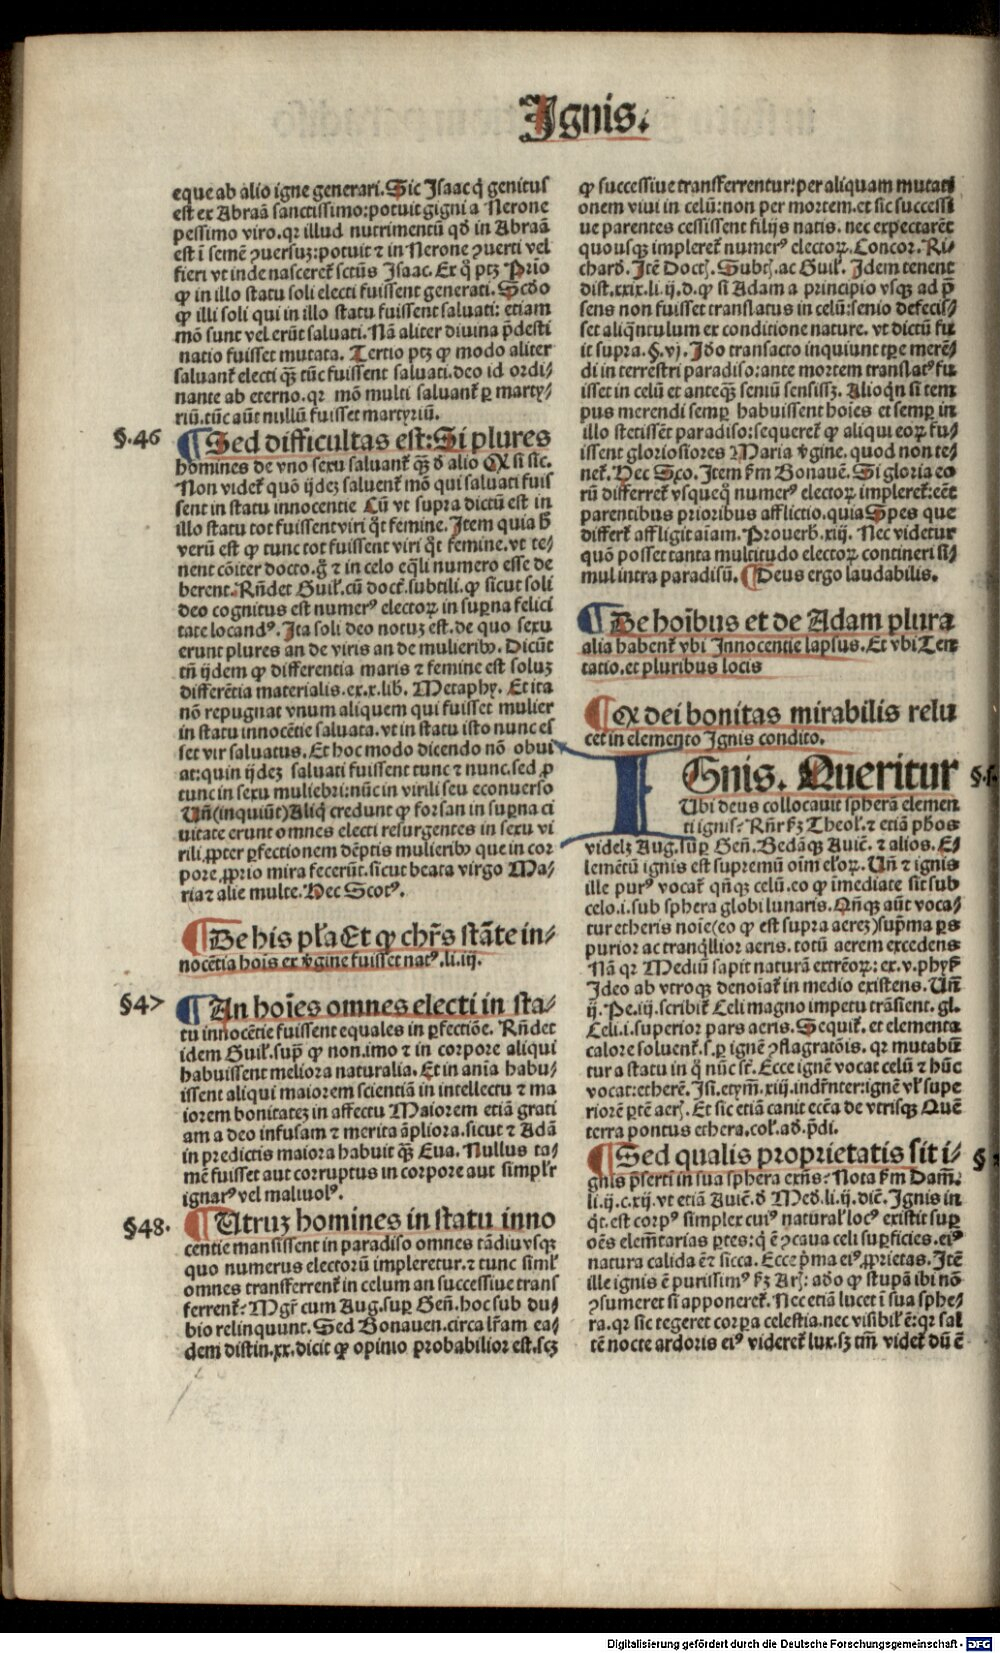 Ignis.
eque ab alio igne generari. Sic Isaac q̇ genitus
est ex Abraā sanctissimo: potuit gigni a Nerone
pessimo viro. qr illud nutrimentū qd̄ in Abraā
est ī semē ꝯuersuz: potuit ⁊ in Nerone ꝯuerti vel
fieri vt inde nasceret̄ sctūs Isaac. Ex q̊ ptz Prīo
ꝙ in illo statu soli electi fuissent generati. Scd̄o
ꝙ illi soli qui in illo statu fuissent saluati: etiam
mō sunt vel erūt saluati. Nā aliter diuina p̄desti
natio fuisset mutata. Tertio ptz ꝙ modo aliter
saluant̄ electi qz̄ tūc fuissent saluati. deo id ordi⸗
nante ab eterno. qr mō multi saluant̄ ꝑ marty⸗
riū. tūc aūt nullū fuisset martyriū.
§.46
¶ Sed difficultas est: Si plures
homines de vno sexu saluant̄ qz̄ d̄ alio Ꝙ si sic.
Non videt̄ quō ijdez saluent̄ mō qui saluati fuis
sent in statu innocentie Cū vt supra dictū est in
illo statu tot fuissent viri q̊t femine. Item quia h̄
verū est ꝙ tunc tot fuissent viri q̊t femine. vt te⸗
nent cōiter docto. g̊ ⁊ in celo eq̄li numero esse de
berent. Rn̄det Guil̄. cū doct̄. subtili. ꝙ sicut soli
deo cognitus est numerꝰ electoꝝ in suꝑna felici
tate locandꝰ. Ita soli deo notuz est. de quo sexu
erunt plures an de viris an de mulieribꝫ. Dicūt
tn̄ ijdem ꝙ differentia maris ⁊ femine est soluz
differētia materialis. ex. x. lib. Metaphy. Et ita
nō repugnat vnum aliquem qui fuisset mulier
in statu innocētie saluata. vt in statu isto nunc es
set vir saluatus. Et hoc modo dicendo nō obui
at: quin ijdez saluati fuissent tunc ⁊ nunc. sed ꝓ
tunc in sexu muliebri: nūc in virili seu econuerso
Un̄(inquiūt)Aliq̇ credunt ꝙ forsan in suꝑna ci
uitate erunt omnes electi resurgentes in sexu vi
rili. ꝓpter ꝑfectionem dēptis mulieribꝫ que in cor
pore. ꝓprio mira fecerūt. sicut beata virgo Ma⸗
ria ⁊ alie multe. Hec Scotꝰ.
¶ De his pl̄a Et ꝙ chr̄s stāte in⸗
nocētia hoīs ex v̇gine fuisset natꝰ. li. iij.
§47
¶ An hoīes omnes electi in sta⸗
tu innocētie fuissent equales in ꝑfectiōe. Rn̄det
idem Guil̄. sup̄ ꝙ non. imo ⁊ in corpore aliqui
habuissent meliora naturalia. Et in ania habu⸗
issent aliqui maiorem scientiā in intellectu ⁊ ma
iorem bonitatez in affectu Maiorem etiā grati
am a deo infusam ⁊ merita āpliora. sicut ⁊ Adā
in predictis maiora habuit qz̄ Eua. Nullus ta⸗
mē fuisset aut corruptus in corpore aut simpl̄r
ignarꝰ vel maliuolꝰ.
§48.
¶ Utruz homines in statu inno
centie mansissent in paradiso omnes tādiu vsqꝫ
quo numerus electorū impleretur. ⁊ tunc siml̄
omnes transferrent̄ in celum an successiue trans
ferrent̄? Mgr̄ cum Aug. suꝑ Gen̄. hoc sub du⸗
bio relinquunt. Sed Bonauen. circa lr̄am ea⸗
dem distin. xx. dicit ꝙ opinio probabilior est. scz
ꝙ successiue transferrentur: per aliquam mutati
onem viui in celū: non per mortem. et sic successi
ue parentes cessissent filijs natis. nec expectarēt
quousqꝫ impleret̄ numerꝰ electoꝝ. Concor. Ri⸗
chard. Itē Doct. Subt. ac Guil̄. Idem tenent
dist. xxix. li. ij. d. ꝙ si Adam a principio vsqꝫ ad p̄
sens non fuisset translatus in celū: senio defecis⸗
set aliqn̄tulum ex conditione nature. vt dictū fu
it supra. §. vj. Ido transacto inquiunt tꝑe merē⸗
di in terrestri paradiso: ante mortem translatꝰ fu
isset in celū et anteqz̄ seniū sensissz. Alioqn̄ si tem
pus merendi semꝑ habuissent hoīes et semꝑ in
illo stetissēt paradiso: sequeret̄ ꝙ aliqui eoꝝ fu⸗
issent gloriosiores Maria v̇gine. quod non te⸗
net̄. Hec Sco. Item ẜm Bonauē. Si gloria eo
rū differret̄ vsquequo numerꝰ electoꝝ impleret̄: eēt
parentibus prioribus afflictio. quia Spes que
differt̄ affligit aīam. Prouerb. xiij. Nec videtur
quō posset tanta multitudo electoꝝ contineri si⸗
mul intra paradisū. ¶ Deus ergo laudabilis.
¶ De hoībus et de Adam plura
alia habent̄ vbi Innocentie lapsus. Et vbi Ten
tatio. et pluribus locis
¶ Ꝙ dei bonitas mirabilis relu
cet in elemento Ignis condito.
IGnis. Queritur
§.1.
Ubi deus collocauit spherā elemen
ti ignis? Rn̄r ẜz Theol̄. ⁊ etiā phōs
videlz Aug. suꝑ Gen̄. Bedāqꝫ Auic̄. ⁊ alios. E⸗
lemētū ignis est supremū oīm el̄oꝝ. Un̄ ⁊ ignis
ille purꝰ vocat̄ qn̄qꝫ celū. eo ꝙ īmediate sit sub
celo. i. sub sphera globi lunaris. Qn̄qꝫ aūt voca⸗
tur etheris noīe(eo ꝙ est supra aerez)supma ꝑs
purior ac tranq̇llior aeris. totū aerem excedens
Nā qr Mediū sapit naturā extrēoꝝ: ex. v. phys̄
Ideo ab vtroqꝫ denoīat̄ in medio existens. Un̄
ij. Pe. iij. scribit̄ Celi magno impetu trāsient. gl.
Celi. i. superior pars aeris. Sequit̄. et elementa
calore soluent̄. s. ꝑ ignē ꝯflagratōis. qr mutabūt
tur a statu in q̊ nūc st̄. Ecce ignē vocat celū ⁊ hūc
vocat: etherē. Isi. etym̄. xiij. indr̄nter: ignē vl̄ supe
riorē ꝑtē aer̄. Et sic etiā canit ecc̄a de vtrisqꝫ Quē
terra pontus ethera. col̄. ad. p̄di.
§
¶ Sed qualis proprietatis sit i⸗
gnis p̄serti in sua sphera exn̄s? Nota ẜm Dam̄.
li. ij. c. xij. vt etiā Auic̄. d̄ Med̄. li. ij. dic̄. Ignis in
q̊t. est corpꝰ simplex cuiꝰ natural̄ locꝰ existit suꝑ
oēs elem̄tarias ꝑtes: q̇ ē ꝯcaua celi suꝑficies. eiꝰ
natura calida ē ⁊ sicca. Ecce p̄ma eiꝰ ꝓprietas. Itē
ille ignis ē purissimꝰ ẜz Ar̄: adō ꝙ stupā ibi nō
ꝯsumeret si apponeret̄. Nec etiā lucet ī sua sphe⸗
ra. qr sic tegeret corꝑa celestia. nec visibil̄ ē: qr sal
tē nocte ardoris eiꝰ videret̄ lux. sz tm̄ videt̄ dū ē
Digitalisierung gefördert durch die Deutsche Forschungsgemeinschaft - DFG